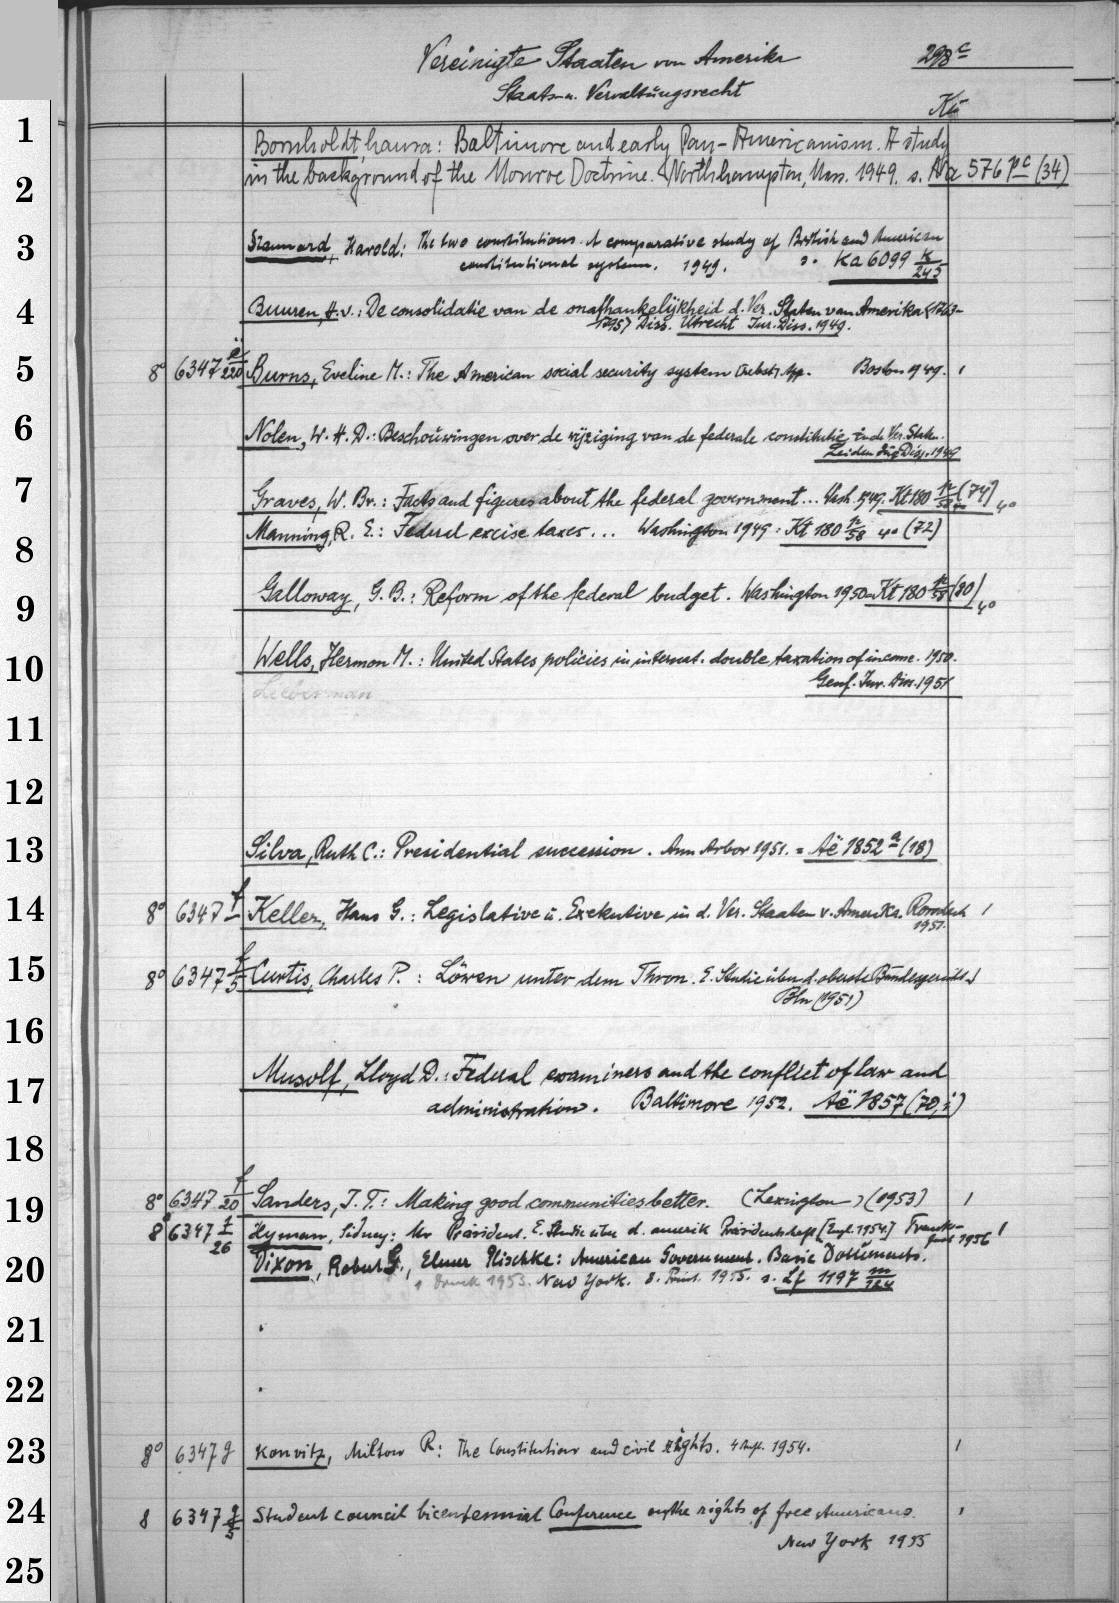 Vereinigte Staaten von Amerika 298c
Staats- u. Verwaltungsrecht
Kü
1
Bornholdt, Laura: Baltimore and early Pan-Americanism. A study
2
in the background of the Monroe Doctrine. Northhampton, Mass. 1949. s. Na 576 pc (34)
3
Stannard, Harold: The two constitutions. A comparative study of British and American
constitutional system. 1949. s. Ka 6099 k/245
4
Buuren, H. v.: De consolidatie van de onafhankelijkheid d. Ver. Staten van Amerika <1763-
1795> Diss. Utrecht Jur. Diss. 1949.
5
8° 6347 e/220 Burns, Eveline M.: The American social security system Boston 1949. 1
6
Nolen, W. H. D.: Beschouwingen over de wijziging van de federale constitutie in de Ver. Staten.
Leiden Jur. Diss. 1949
7
Graves, W. Br.: Facts and figures about the federal government... Wash. 1949. Kt 180 n/58 (74) 4°
8
Manning, R. E.: Federal excise taxes... Washington 1949: Kt 180 n/58 4° (72)
9
Galloway, G. B.: Reform of the federal budget. Washington 1950= Kt 180 n/58 (80) 4°
10
Wells, Hermon M.: United States policies in internat. double taxation of income. 1950.
Genf. Jur. Diss. 1951
Lieberman
11
12
13
Silva, Ruth C.: Presidential succession. Ann Arbor 1951. = Aë 1852 a (18)
14
8° 6347 f Keller, Hans G.: Legislative u. Exekutive in d. Ver. Staaten v. Amerika. Rorschach 1
1951.
15
8° 6347 f/5 Curtis, Charles P.: Löwen unter dem Thron. E. Studie über d. oberste Bundesgericht. 1
Bln (1951)
16
17
Musolf, Lloyd D.: Federal examiners and the conflict of law and
administration. Baltimore 1952. Aë 1857 (70,1)
18
19
8° 6347 f/20 Sanders, I. T.: Making good communities better. (Lexington) (1953) 1
8° 6347 f/26 Hyman, Sidney: Der Präsident. E. Studie über d. amerik Präsidentschaft [Engl. 1954] Frank- 1
furt 1956
20
Dixon, Robert G., Elmer Plischke: American Government. Basic Documents.
1 Druck 1953. New York. 2. Print. 1955. s. Lf 1197 m/124
21
22
23
8° 6347 g Konvitz, Milton R: The Constitution and civil rights. 4 Aufl. 1954. 1
24
8 6347 g/5 Student council bicentennial Conference on the rights of free Americans. 1
New York 1955
25